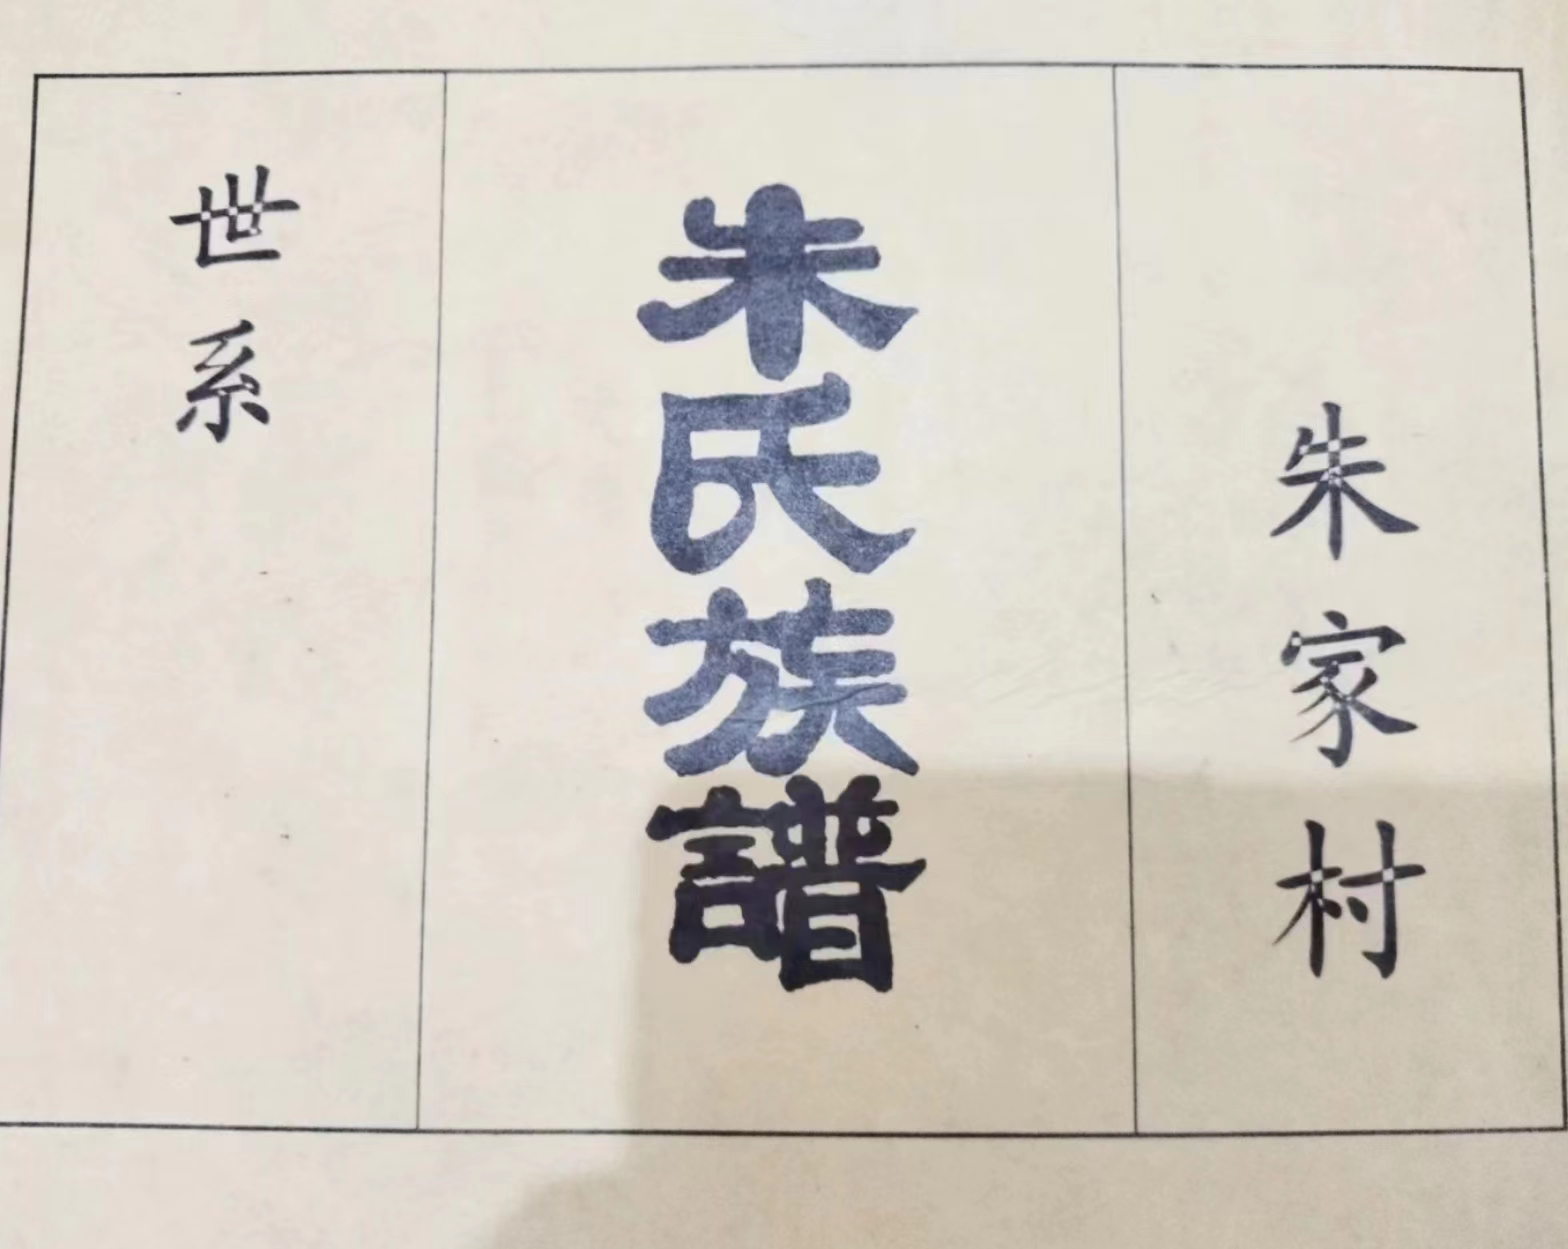 朱家村
朱氏族譜
世系